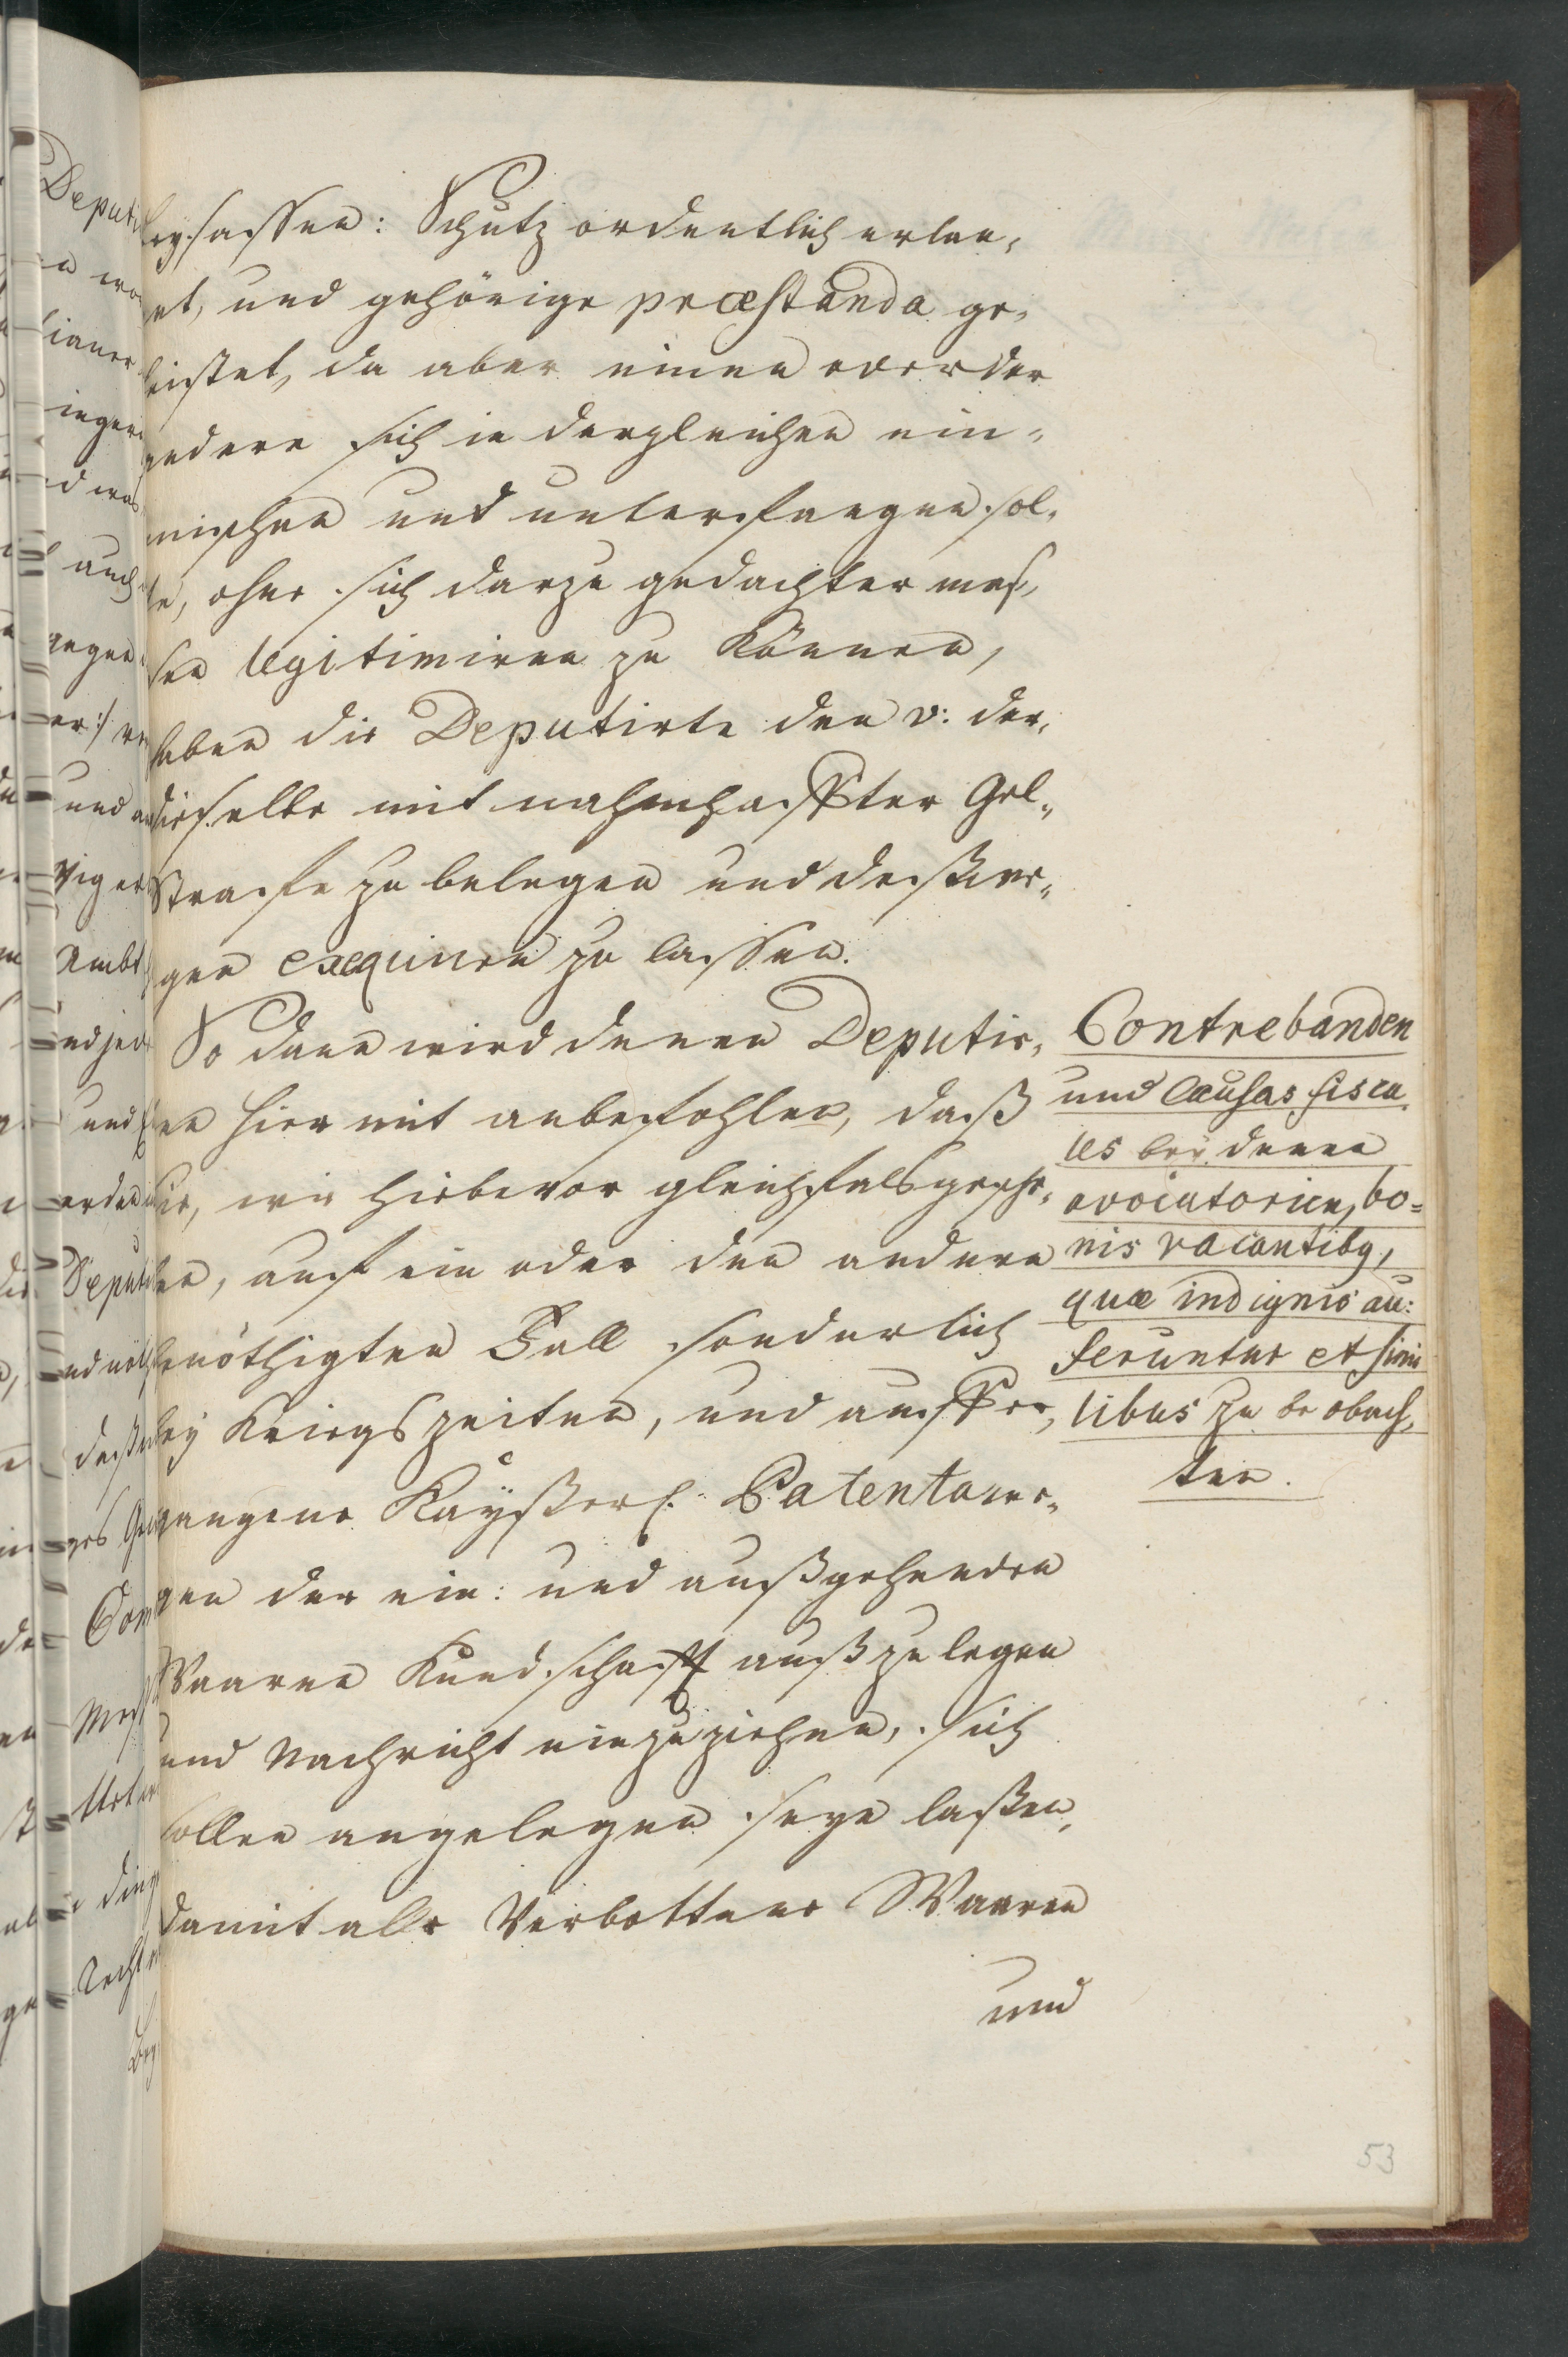 beysassen: Schutz ordentlich erlan,
get, und gehörige præstanda ge,
leistet, da aber einen oder der
andere sich in dergleichen ein„
mischen und unterfangen sol,
te, ohne sich darzu gedachter mas,
sen legitimiren zu Können,
haben die Deputirte den v: der,
dieselbe mit nahmhaffter Gel„
Straffe zu belegen und deßwe„
gen exequiren zu lassen.
So dann wird denen Deputir,
ten hier mit anbefohlen, daß
sie, wie hiebevor gleichfals gesche,
hen, auf ein oder den andern
benöthigten Fall sonderlich
bey Kriegszeiten, und auff er,
gangene Kayßerl. Patenta we„
gen der ein: und außgehenden
Waaren Kundschafft außzulegen
und Nachricht einzuziehen, sich
sollen angelegen seyn laßen,
damit alle Verbottene Waaren
und
Contrebanden
und Causas fisca,
les bey denen
avocatorien, bo=
nis vacantibg,
quæ indignis au:
feruntur et simi
libus zu beobach,
ten.
53